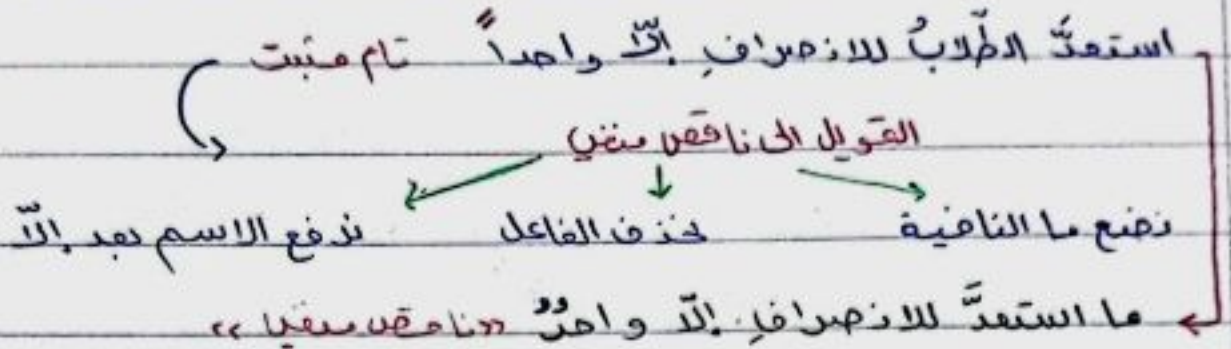 استعدَّ الطّلابُ للانصرافِ إلّا واحداً تام مثبت
التحويل الى ناقص منفي
نضع ما النافية نحذف الفاعل نرفع الاسم بعد إلّا
ما استعدَّ للانصرافِ إلّا واحدٌ «ناقص منفي»